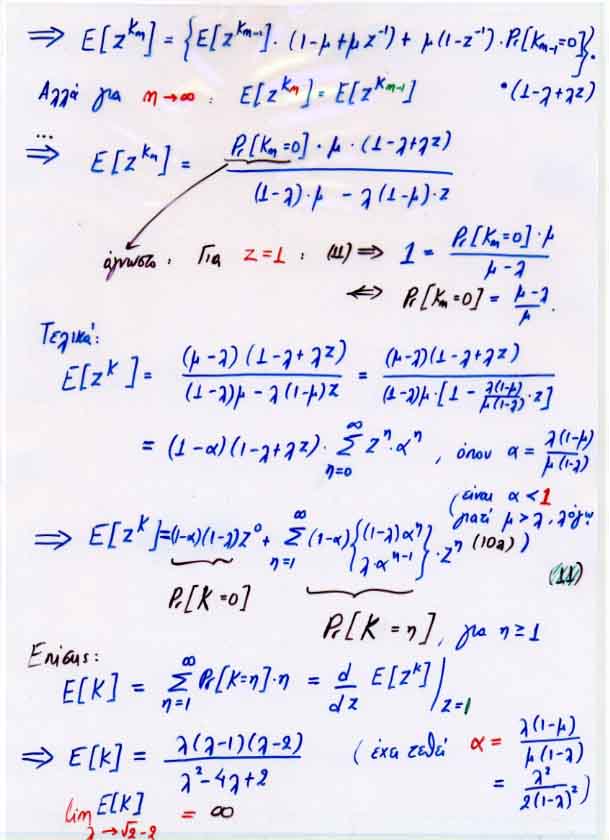 ⇒ E[z^{K_m}] = {E[z^{K_{m-1}}]·(1-μ+μz^{-1}) + μ(1-z^{-1})·Pr[K_{m-1}=0]}·
Αλλά για η→∞ : E[z^{K_m}] = E[z^{K_{m-1}}] ·(1-λ+λz)
...
⇒ E[z^{K_m}] = \frac{Pr[K_m=0]·μ·(1-λ+λz)}{(1-λ)·μ - λ(1-μ)·z}
άγνωστο : Για z=1 : (11) ⇒ 1 = \frac{Pr[K_m=0]·μ}{μ-λ}
⇔ Pr[K_m=0] = \frac{μ-λ}{μ}.
Τελικά:
E[z^K] = \frac{(μ-λ)(1-λ+λz)}{(1-λ)μ-λ(1-μ)z} = \frac{(μ-λ)(1-λ+λz)}{(1-λ)μ·[1-\frac{λ(1-μ)}{μ(1-λ)}·z]}
= (1-α)(1-λ+λz)·\sum_{η=0}^{∞} z^η·α^η , όπου α = \frac{λ(1-μ)}{μ(1-λ)}
(είναι α<1
γιατί μ>λ, λόγω
(10λ))
⇒ E[z^K]=(1-α)(1-λ)z^0 + \sum_{η=1}^{∞}(1-α){(1-λ)α^η + λ·α^{η-1}}·z^η
(11)
Pr[K=0]
Pr[K=η], για η≥1
Επίσης:
E[K] = \sum_{η=1}^{∞} Pr[K=η]·η = \frac{d}{dz} E[z^K]|_{z=1}
⇒ E[K] = \frac{λ(λ-1)(λ-2)}{λ²-4λ+2} (έχει τεθεί α = \frac{λ(1-μ)}{μ(1-λ)}
= \frac{λ²}{2(1-λ)²})
lim_{λ→√2-2} E[K] = ∞